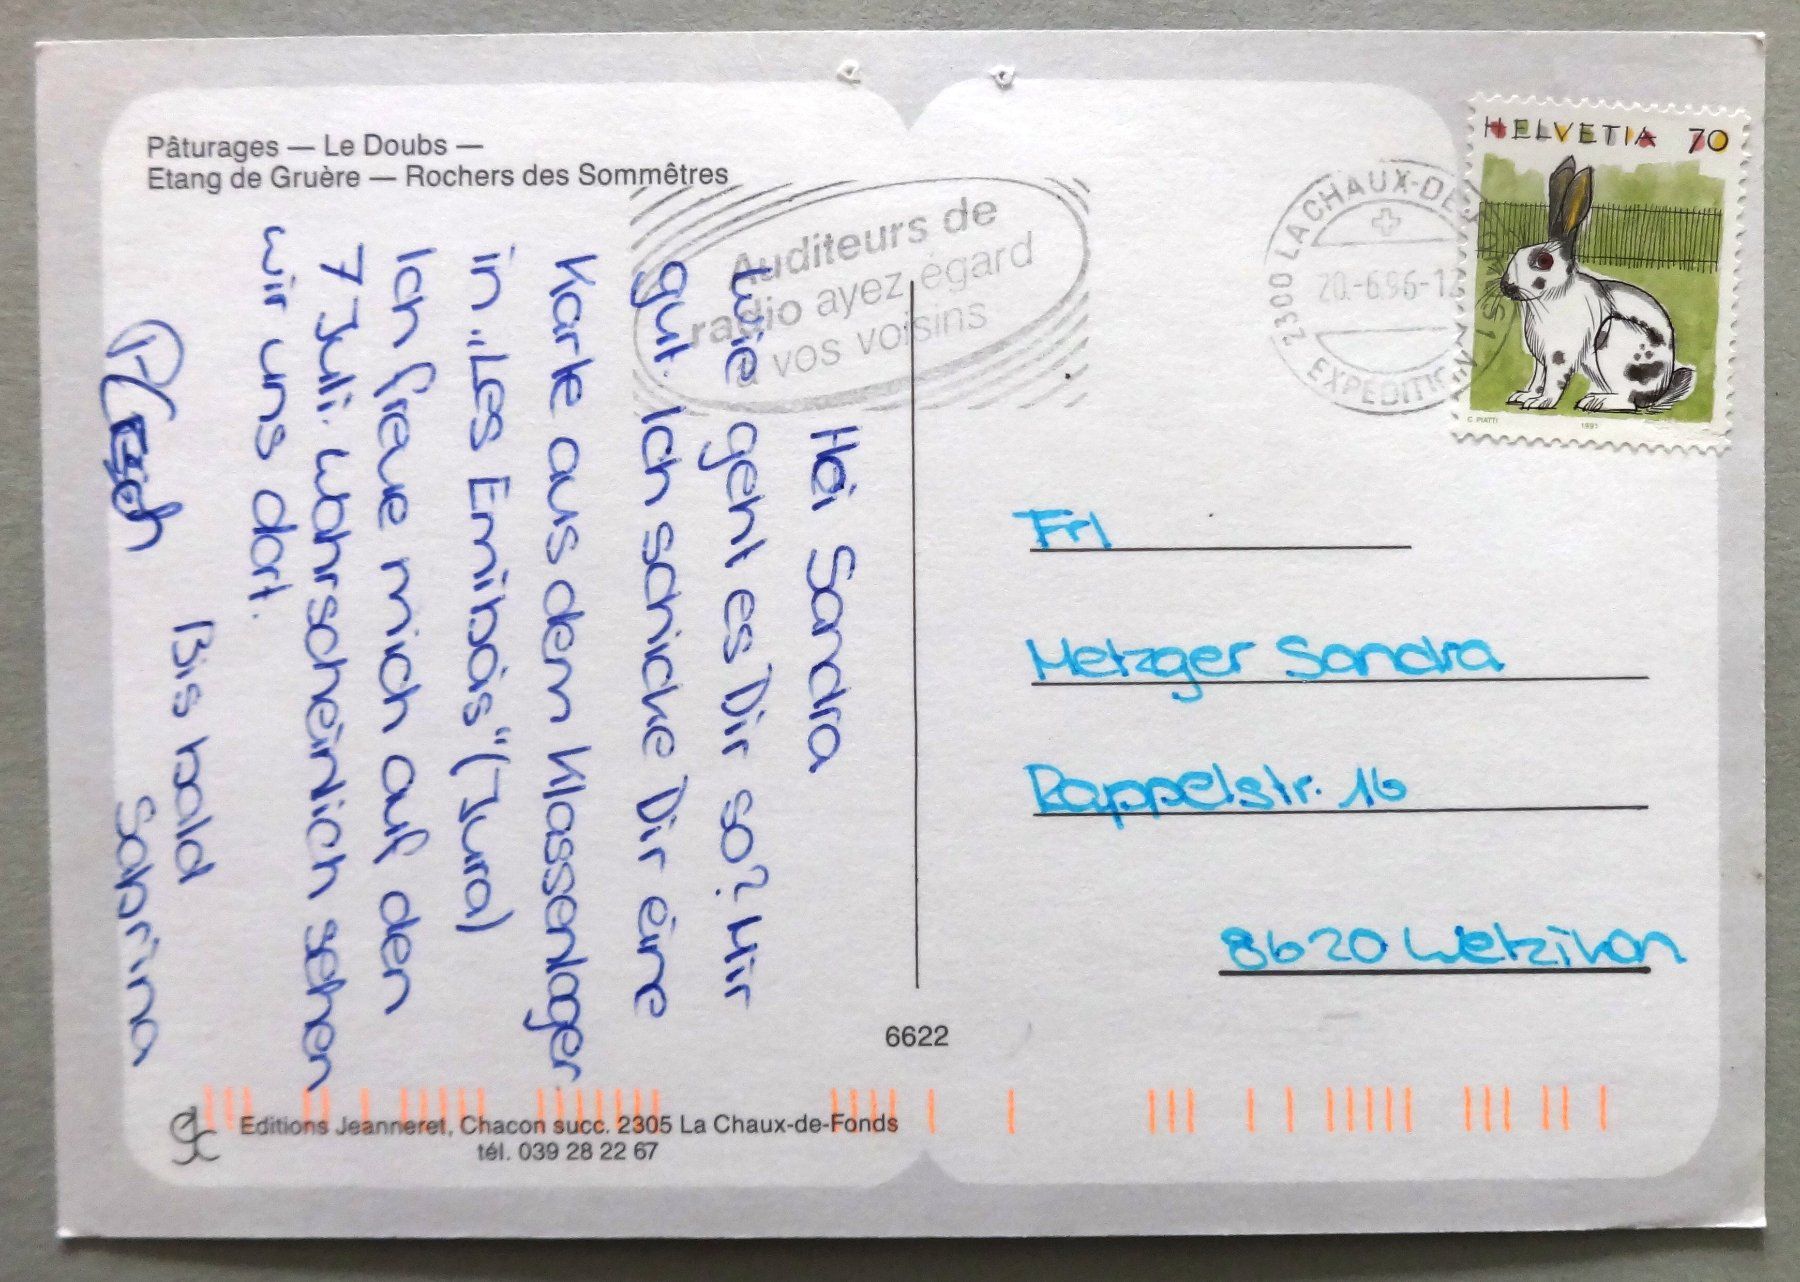 Pâturages — Le Doubs —
Etang de Gruère — Rochers des Sommêtres
Auditeurs de
radio ayez égard
à vos voisins
2300 LA CHAUX-DE-FONDS 1
20.-6.96-12
EXPÉDITION
HELVETIA 70
C. PIATTI 1991
Hei Sandra
Wie geht es Dir so? Mir
gut. Ich schicke Dir eine
Karte aus dem Klassenlager
in „Les Emibòs" (Jura)
Ich freue mich auf den
7 Juli. Wahrscheinlich sehen
wir uns dort.
Bis bald
Sabrina
Frl
Metzger Sandra
Rappelstr. 16
8620 Wetzikon
6622
Editions Jeanneret, Chacon succ. 2305 La Chaux-de-Fonds
tél. 039 28 22 67